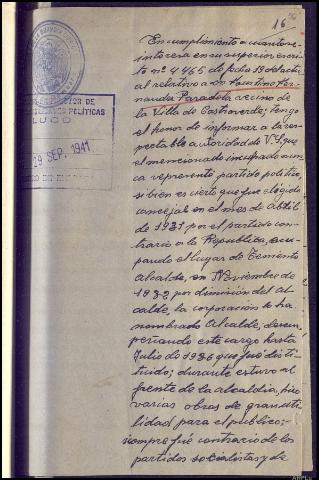 16
En cumplimiento a cuanto se
interesa en su superior escri-
to nº 4465 de fecha 19 del actu-
al relativo a Dn Faustino Fer-
nandez Paradela vecino de
la Villa de Castroverde; tengo
el honor de informar a la res-
petable autoridad de V.S. que
el mencionado inculpado nun-
ca representó partido político,
si bien es cierto que fue elegido
concejal en el mes de Abril
de 1931 por el partido con-
trario a la República, ocu-
pando el lugar de Teniente
Alcalde, en Noviembre de
1932 por dimisión del Al-
calde, la corporación le ha
nombrado Alcalde, desem-
peñando este cargo hasta
Julio de 1936 que fue disti-
tuido; durante estuvo al
frente de la alcaldía, hizo
varias obras de gran uti-
lidad para el público;-
siempre fué contrario de los
partidos socialistas y de
INSTRUCTOR DE
POLÍTICAS
LUGO
29 SEP. 1941